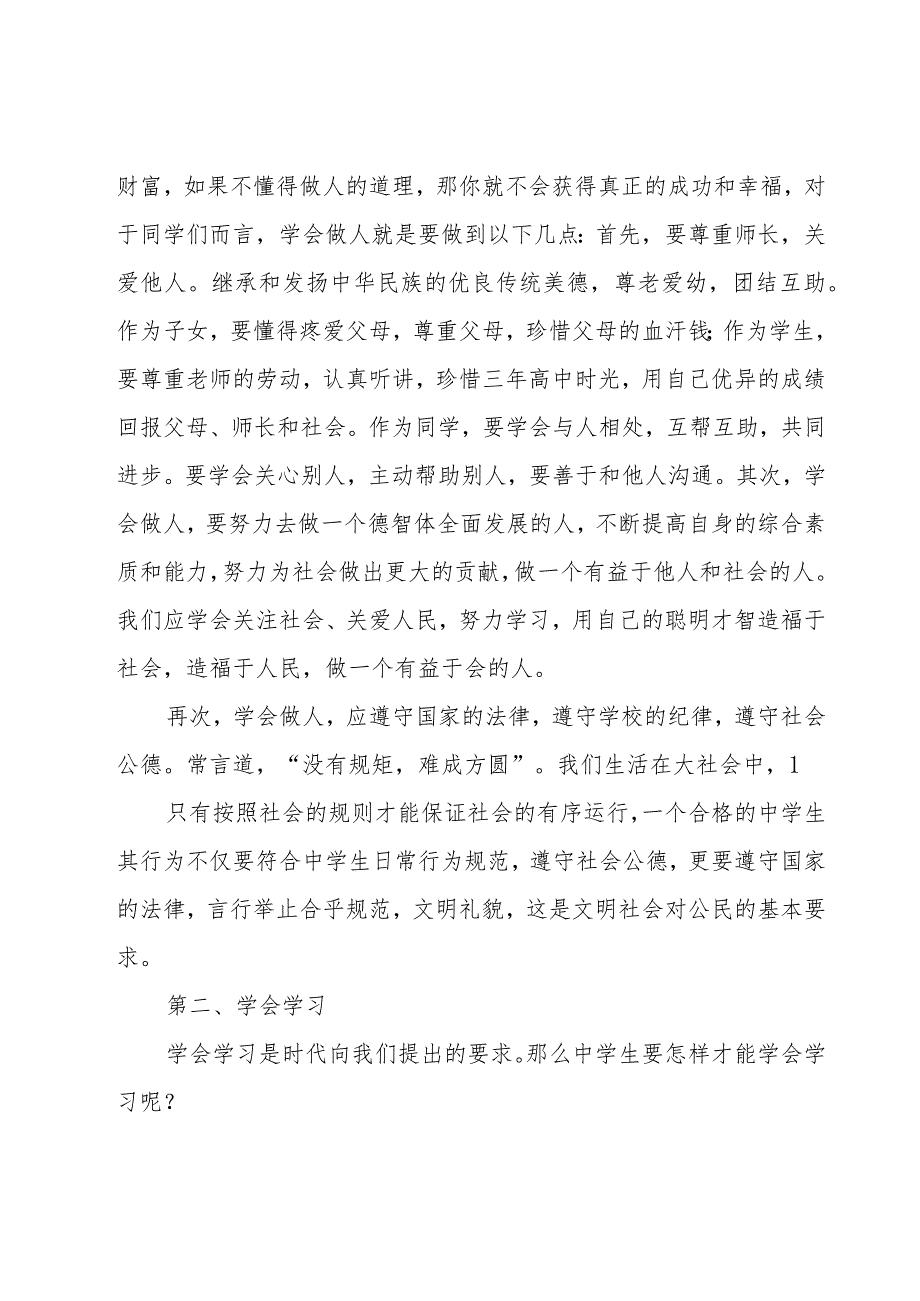 财富，如果不懂得做人的道理，那你就不会获得真正的成功和幸福，对
于同学们而言，学会做人就是要做到以下几点：首先，要尊重师长，关
爱他人。继承和发扬中华民族的优良传统美德，尊老爱幼，团结互助。
作为子女，要懂得疼爱父母，尊重父母，珍惜父母的血汗钱；作为学生，
要尊重老师的劳动，认真听讲，珍惜三年高中时光，用自己优异的成绩
回报父母、师长和社会。作为同学，要学会与人相处，互帮互助，共同
进步。要学会关心别人，主动帮助别人，要善于和他人沟通。其次，学
会做人，要努力去做一个德智体全面发展的人，不断提高自身的综合素
质和能力，努力为社会做出更大的贡献，做一个有益于他人和社会的人。
我们应学会关注社会、关爱人民，努力学习，用自己的聪明才智造福于
社会，造福于人民，做一个有益于会的人。
再次，学会做人，应遵守国家的法律，遵守学校的纪律，遵守社会
公德。常言道，“没有规矩，难成方圆”。我们生活在大社会中，1
只有按照社会的规则才能保证社会的有序运行，一个合格的中学生
其行为不仅要符合中学生日常行为规范，遵守社会公德，更要遵守国家
的法律，言行举止合乎规范，文明礼貌，这是文明社会对公民的基本要
求。
第二、学会学习
学会学习是时代向我们提出的要求。那么中学生要怎样才能学会学
习呢？